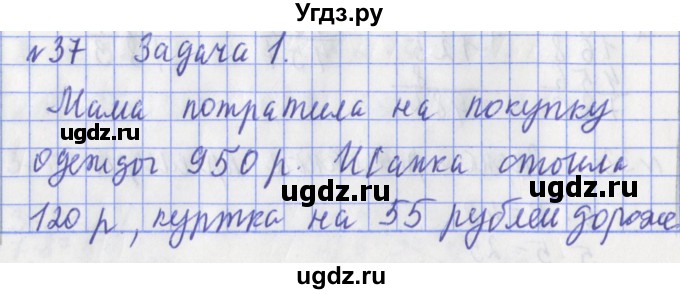 Угдз.ру
№37 Задача 1.
Мама потратила на покупку
одежды 950 р. Шапка стоила
120 р, куртка на 55 рублей дороже
ugdz.ru ugdz.ru
ugdz.ru ugdz.ru
ugdz.ru ugdz.ru
ugdz.ru